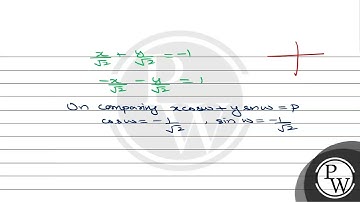 x/√2 + y/√2 = -1
-x/√2 - y/√2 = 1
On comparing x cos ω + y sin ω = P
cos ω = -1/√2 , sin ω = -1/√2
P
W
P
W